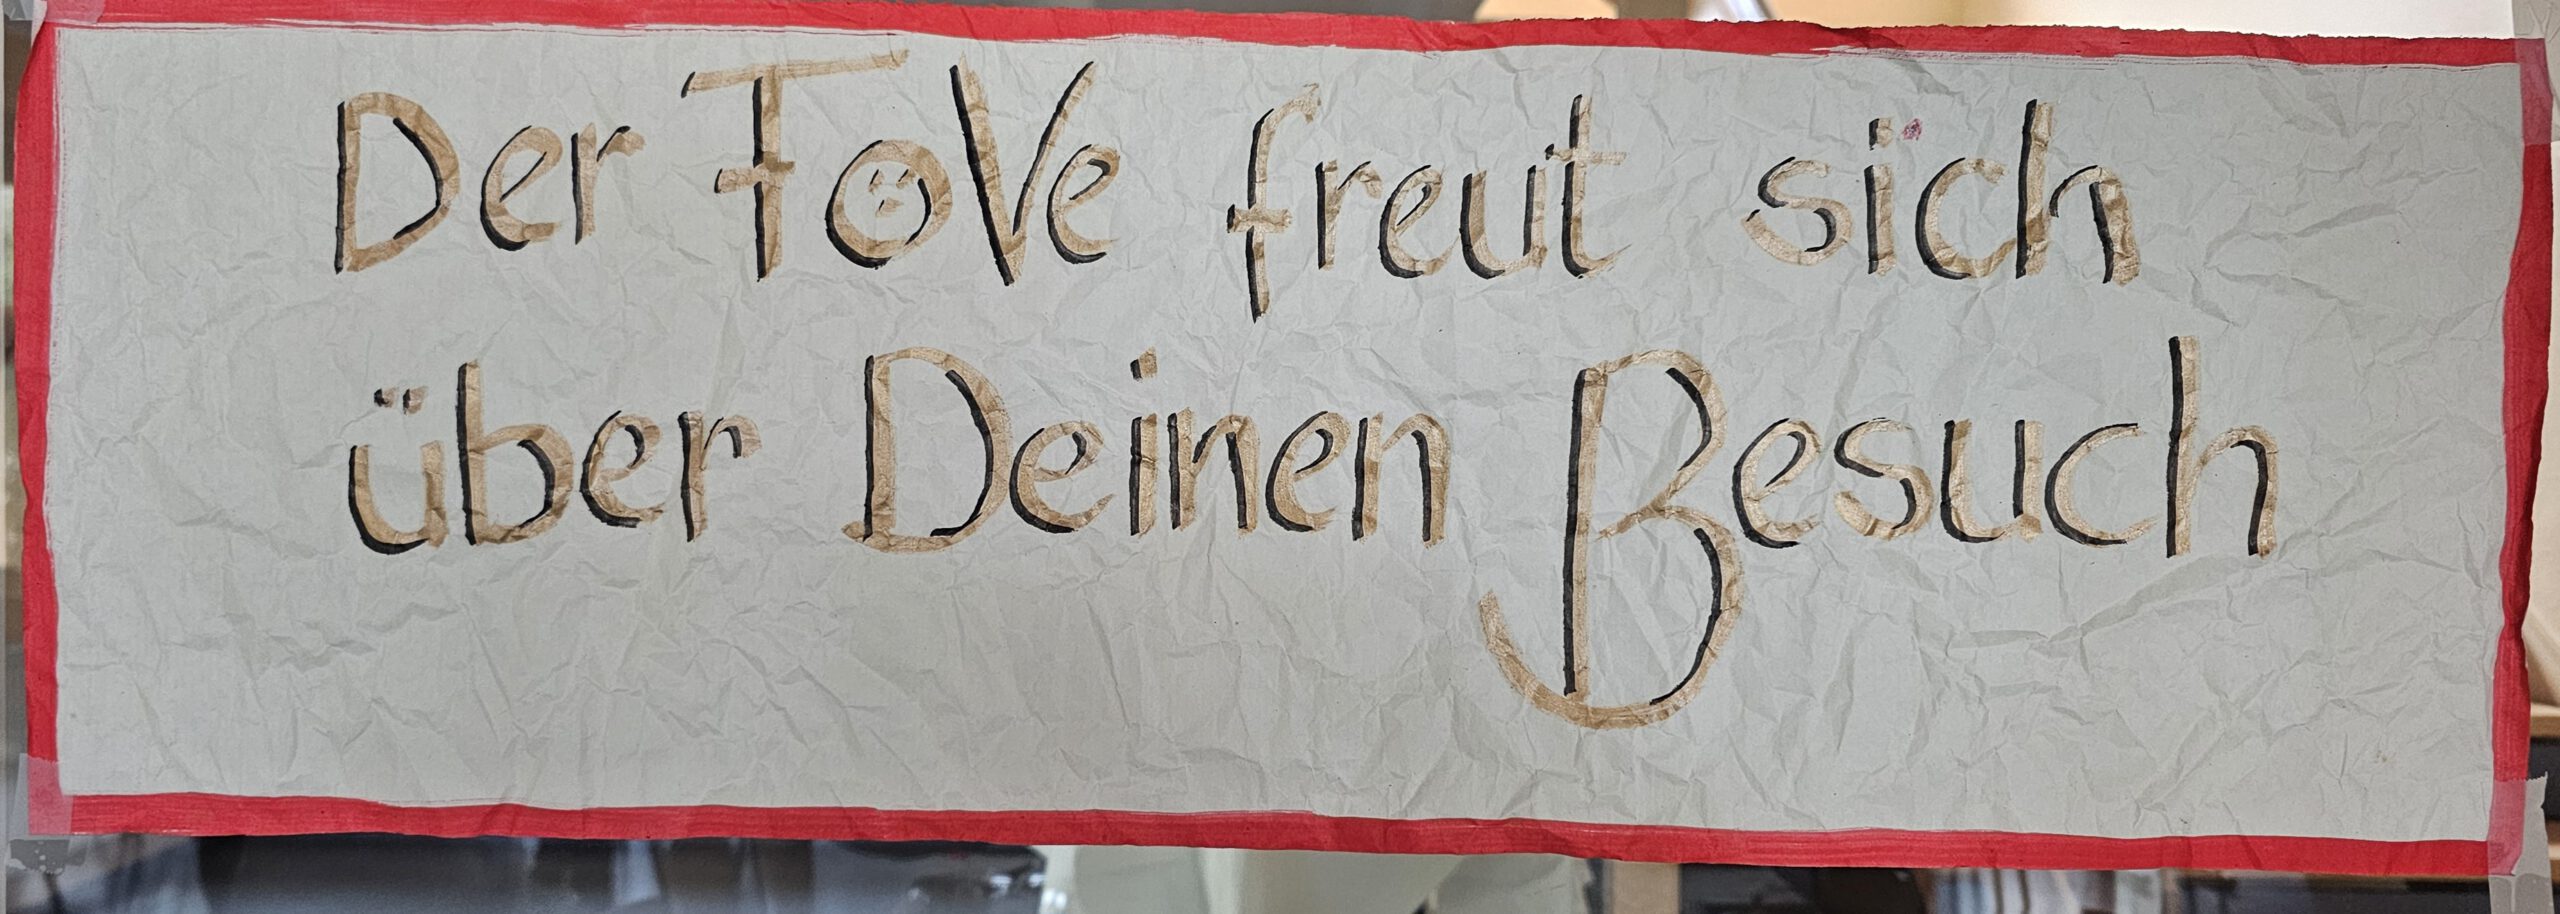 Der FoVe freut sich
über Deinen Besuch